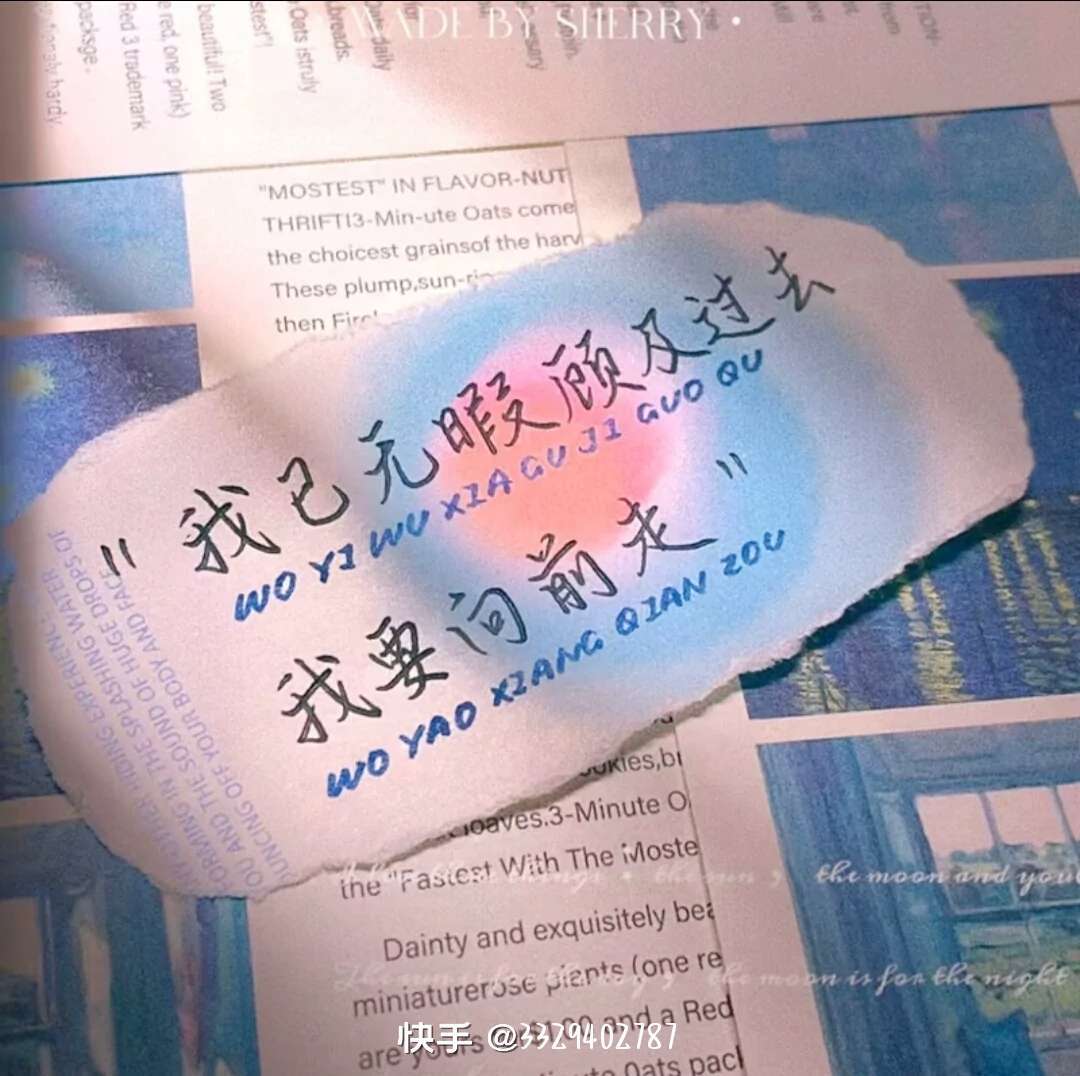 MADE BY SHERRY •
beautiful! Two
e red, one pink)
Red 3 trademark
packsge .
"MOSTEST" IN FLAVOR-NUT
THRIFTI3-Min-ute Oats come
the choicest grainsof the harv
These plump,sun-ri
then Fire
"我已无暇顾及过去
WO YI WU XIA GU JI GUO QU
我要向前走"
WO YAO XIANG QIAN ZOU
HDING EXPERIENCE
IN THE SPLASHING WATER
OU AND THE SOUND OF HUGE DROPS OF
UNCING OFF YOUR BODY AND FACE
okies,br
loaves.3-Minute O
the "Fastest With The Moste
the sun , the moon and you
Dainty and exquisitely bea
miniaturerose plants (one re
the moon is for the night
are yours and a Red
快手 @3329402787
Oats pack